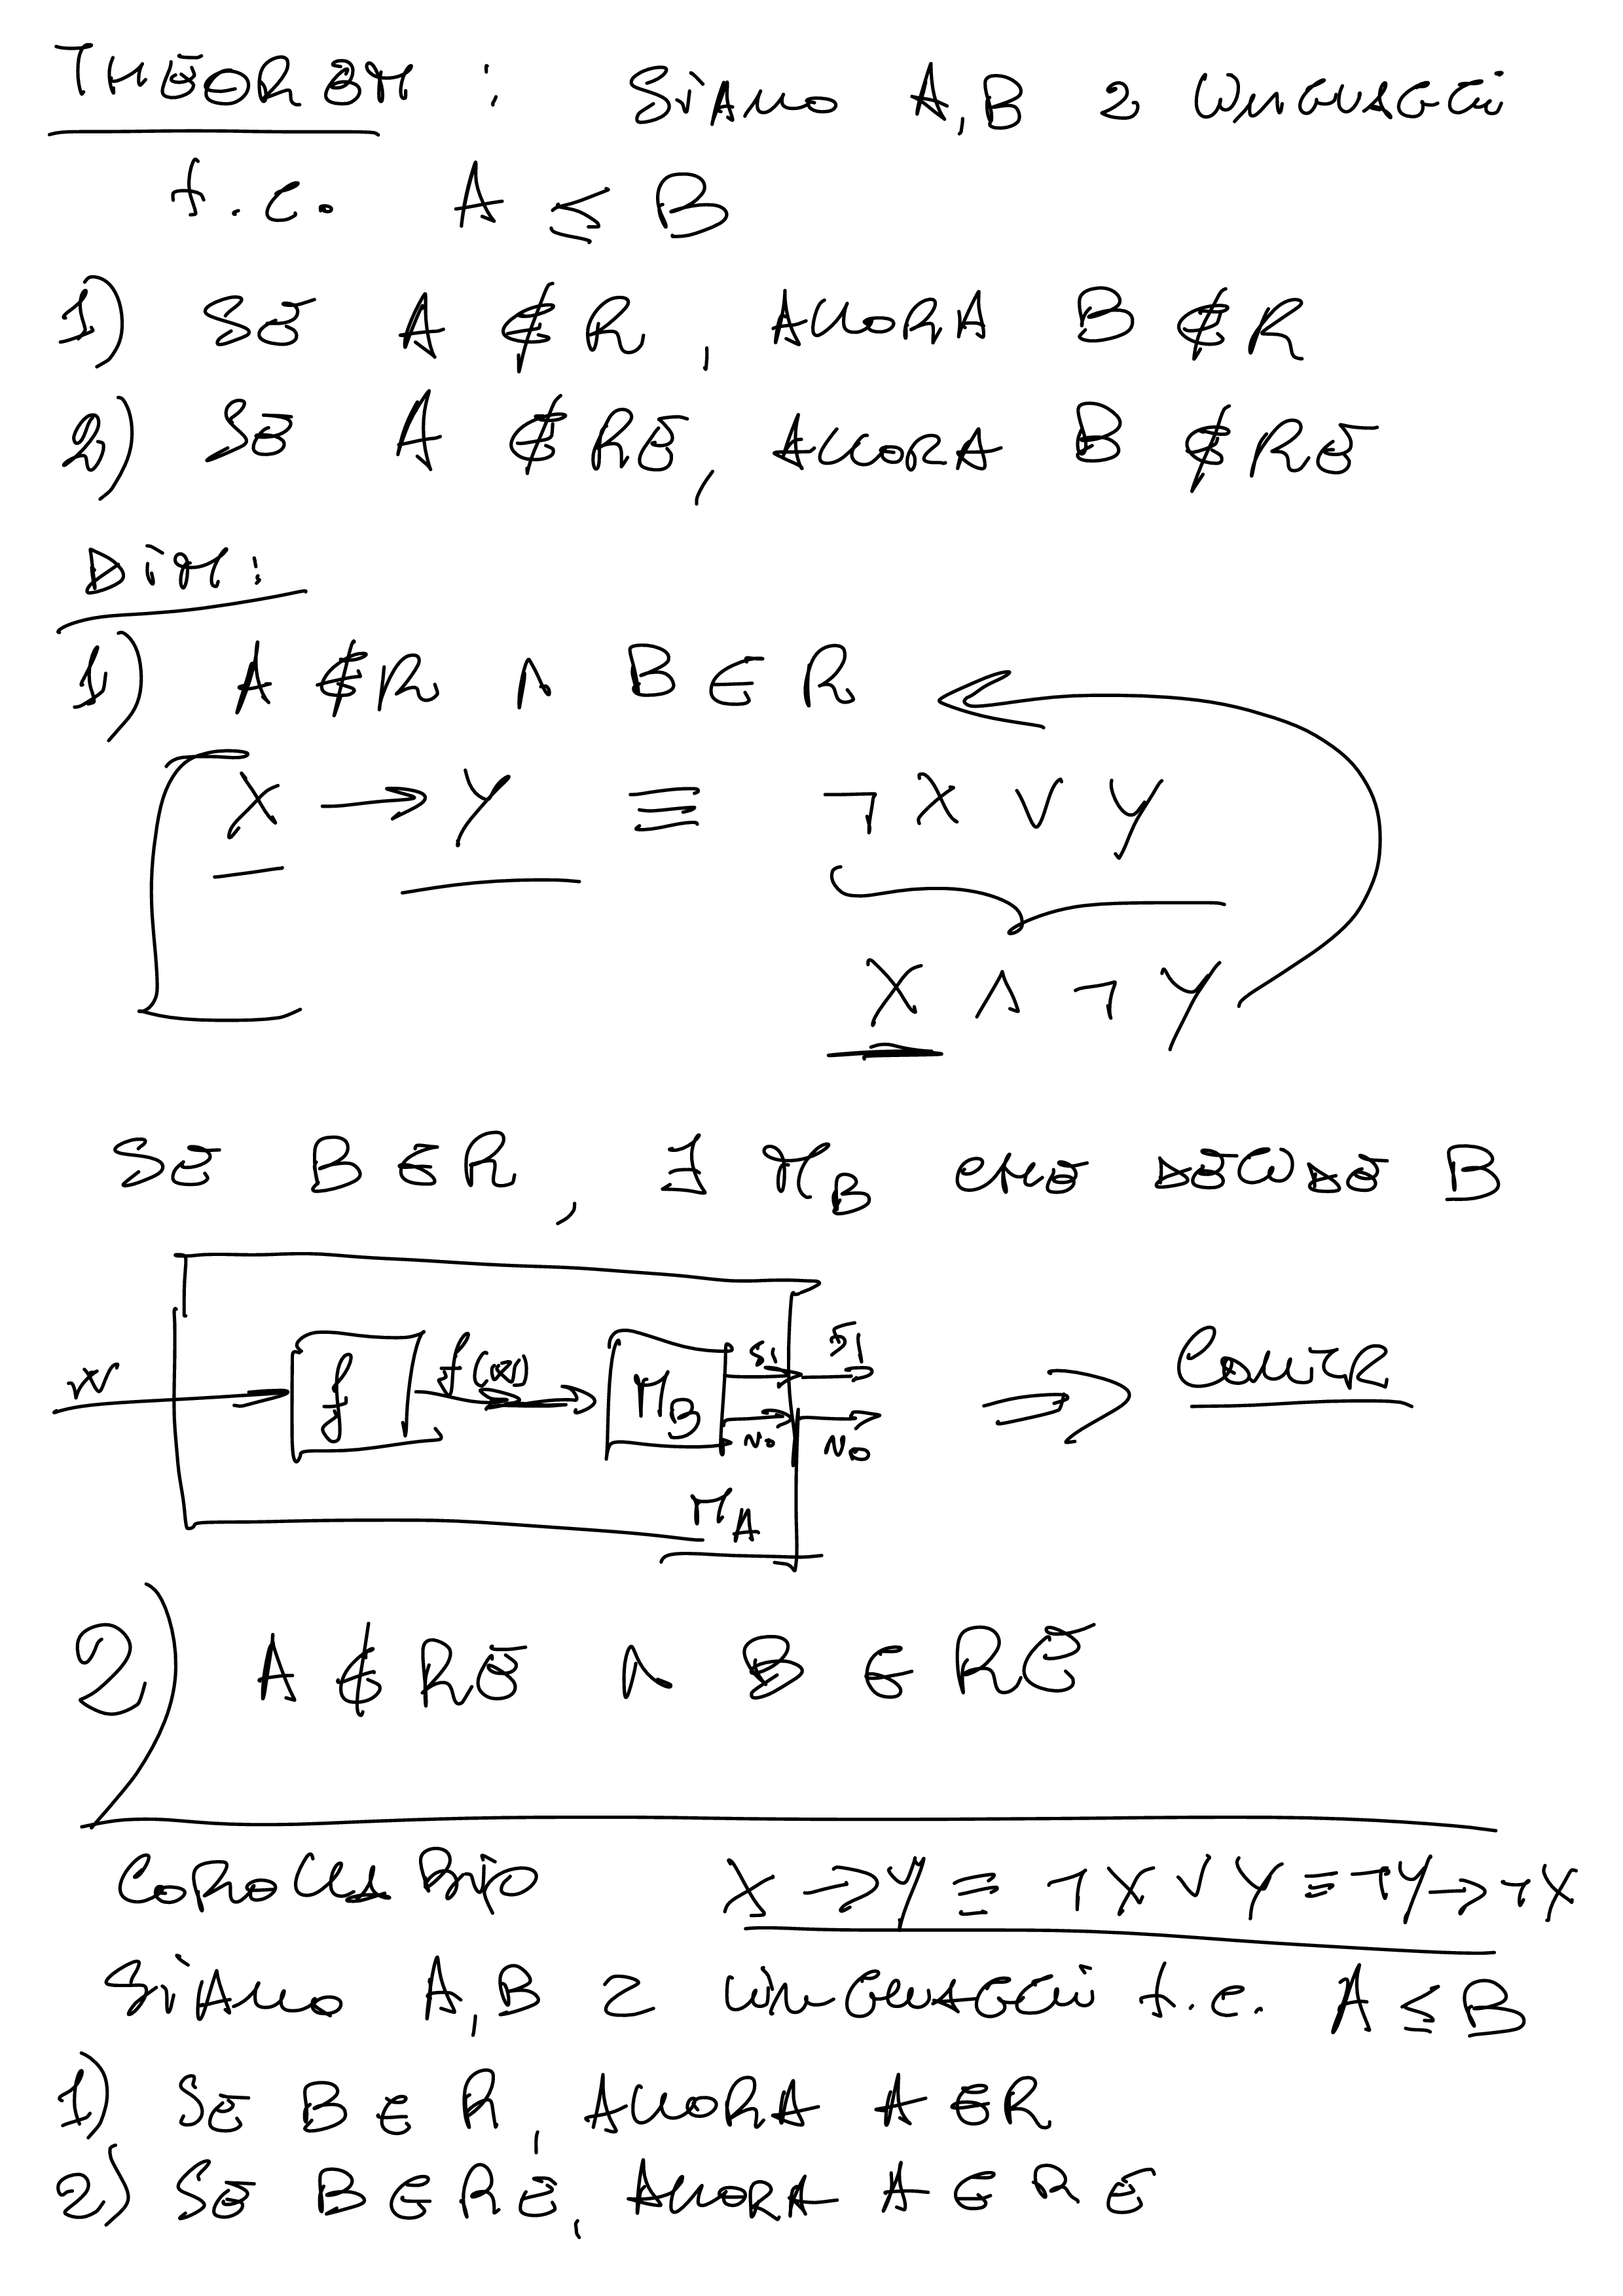 THEOREM : SIANO A, B 2 LINGUAGGI
t.c. A ≤ B
1) SE A ∉ R, ALLORA B ∉ R
2) SE A ∉ RE, ALLORA B ∉ RE
DIM:
1) A ∉ R ∧ B ∈ R
X → Y ≡ ¬ X ∨ Y
X ∧ ¬ Y
SE B ∈ R, ∃ M_B CHE DECIDE B
w f f(w) M_B SI NO SI NO ⇒ CONTR
M_A
2) A ∉ RE ∧ B ∈ RE
COROLLARIO X → Y ≡ ¬ X ∨ Y ≡ ¬Y → ¬X
SIANO A, B 2 LINGUAGGI t.c. A ≤ B
1) SE B ∈ R, ALLORA A ∈ R
2) SE B ∈ RE, ALLORA A ∈ RE